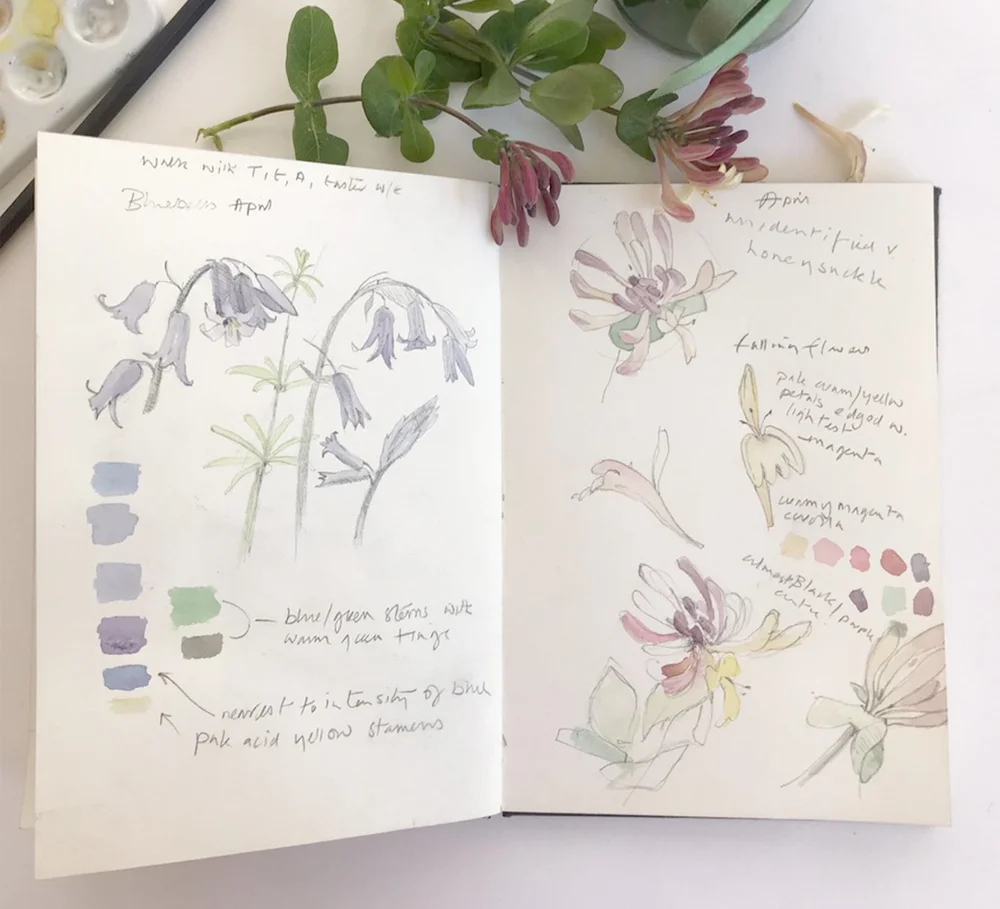 Walk with T, E, A, Easter w/e
Bluebells April
blue/green stems with
warm green tinge
nearest to intensity of blue
pale acid yellow stamens
April
unidentified v.
honeysuckle
falling flowers
pale cream/yellow
petals edged w.
lightest
magenta
creamy magenta
corolla
almost Black/purple
centre